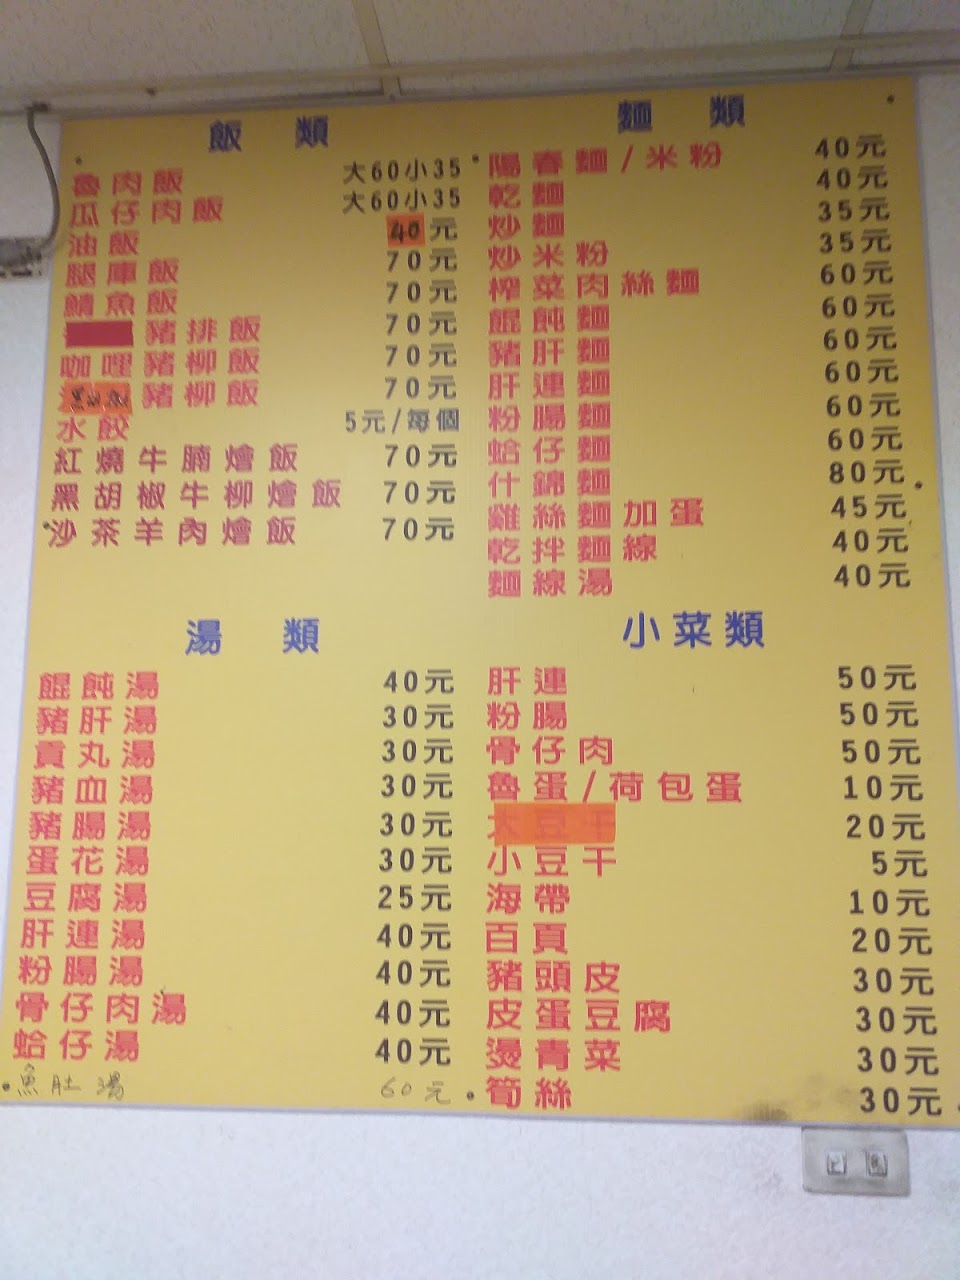 飯類
魯肉飯 大60小35
瓜仔肉飯 大60小35
油飯 40元
腿庫飯 70元
鯖魚飯 70元
豬排飯 70元
咖哩豬柳飯 70元
豬柳飯 70元
水餃 5元/每個
紅燒牛腩燴飯 70元
黑胡椒牛柳燴飯 70元
沙茶羊肉燴飯 70元
麵類
陽春麵/米粉 40元
乾麵 40元
炒麵 35元
炒米粉 35元
榨菜肉絲麵 60元
餛飩麵 60元
豬肝麵 60元
肝連麵 60元
粉腸麵 60元
蛤仔麵 60元
什錦麵 80元
雞絲麵加蛋 45元
乾拌麵線 40元
麵線湯 40元
湯類
餛飩湯 40元
豬肝湯 30元
貢丸湯 30元
豬血湯 30元
豬腸湯 30元
蛋花湯 30元
豆腐湯 25元
肝連湯 40元
粉腸湯 40元
骨仔肉湯 40元
蛤仔湯 40元
魚肚湯 60元
小菜類
肝連 50元
粉腸 50元
骨仔肉 50元
魯蛋/荷包蛋 10元
大豆干 20元
小豆干 5元
海帶 10元
百頁 20元
豬頭皮 30元
皮蛋豆腐 30元
燙青菜 30元
筍絲 30元